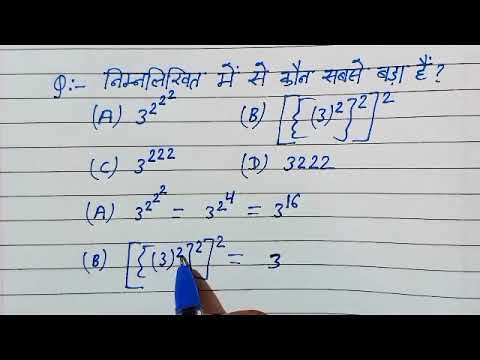 Q:- निम्नलिखित में से कौन सबसे बड़ा हैं ?
(A) 3^2^2^2 (B) [{(3)^2}^2]^2
(C) 3^222 (D) 3222
(A) 3^2^2^2 = 3^2^4 = 3^16
(B) [{(3)^2}^2]^2 = 3